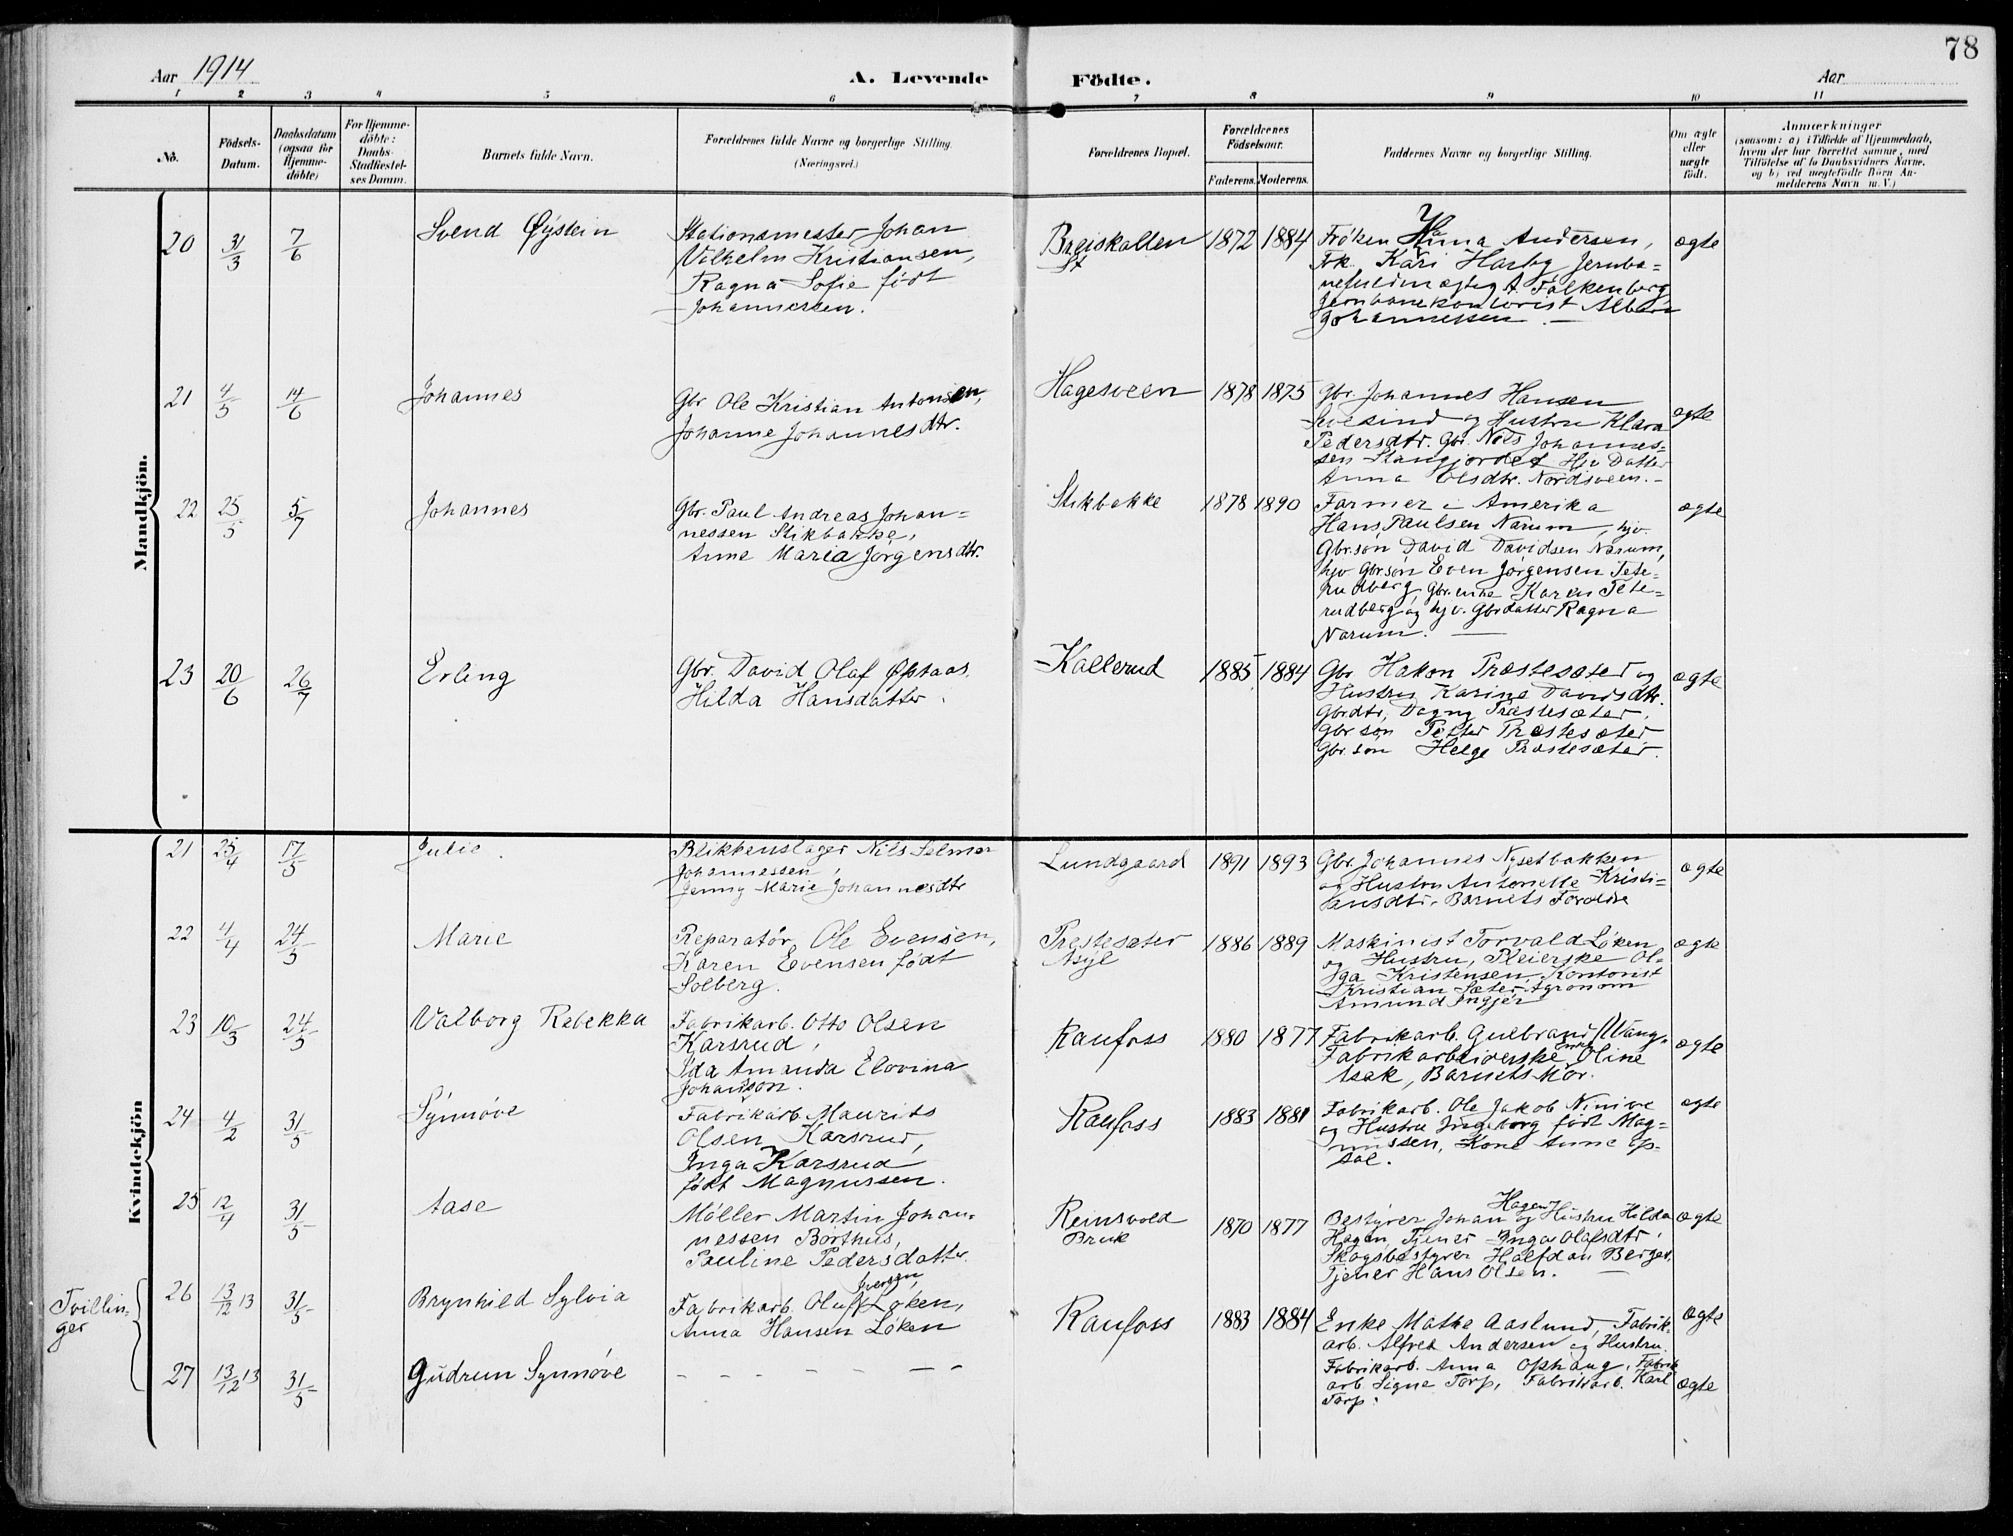 78
Aar 1914
A. Levende Födte.
Aar
1 2 3 4 5 6 7 8 9 10 11
No.
Födsels-
Datum.
Daabsdatum
(ogsaa for
Hjemme-
döbte)
For Hjemme-
döbte:
Daabs-
Stadfæstel-
ses Datum.
Barnets fulde Navn.
Forældrenes fulde Navne og borgerlige Stilling.
(Næringsvei.)
Forældrenes Bopæl.
Forældrenes
Födselsaar.
Faderens. Moderens.
Faddernes Navne og borgerlige Stilling.
Om ægte
eller
uægte
födt.
Anmærkninger
(saasom: a) i Tilfælde af Hjemmedaab,
hvem der har forrettet samme, med
Tilföielse af to Daabsvidners Navne.
og b) ved uægtefödte Börn An-
melderens Navn m. V.)
Mandkjön.
20 31/3 7/6 Svend Øystein
Stationsmester Johan
Vilhelm Kristiansen,
Ragna Sofie født
Johannessen.
Breiskallen
St
1872 1884
Frøken Hanna Andersen,
Frk. Kari Hasby Jernba=
nefuldmægtig A. Falkenberg,
Jernbanekontorist Albert
Johannessen. —
ægte
21 4/5 14/6 Johannes
Gbr Ole Kristian Antonsen,
Johanne Johannesdtr.
Hagesveen 1878 1875
Gbr. Johannes Hansen
Sivesind og Hustru Klara
Pedersdtr. Gbr. Nils Johannes=
sen Stangjordet Hjv Datter
Anna Olsdtr. Nordsveen. -
ægte
22 25/5 5/7 Johannes
Gbr. Paul Andreas Johan=
nessen Stikbakke,
Anne Maria Jørgensdtr.
Stikbakke 1878 1890
Farmer i Amerika
Hans Paulsen Narum, hjv.
Gbr.søn David Davidsen Narum,
hjv Gbr.søn Even Jørgensen Tete=
rudberg, Gbr.enke Karen Tete=
rudberg og hjv. Gbrdatter Ragna
Narum. —
ægte
23 20/6 26/7 Erling
Gbr. David Olaf Opsaas.
Hilda Hansdatter.
Kallerud 1885 1884
Gbr Hakon Præstesæter og
Hustru Karine Davidsdtr.
Gbrdtr, Dagny Præstesæter,
Gbr søn Petter Præstesæter
Gbr. søn Helge Præstesæter.
ægte
Kvindekjön
21 25/4 17/5 Julie.
Blikkenslager Nils Selmer
Johannessen,
Jenny Marie Johannesdtr
Lundgaard 1891 1893
Gbr. Johannes Nysetbakken
og Hustru Antonette Kristi=
ansdtr. Barnets Forældre
ægte
22 4/4 24/5 Marie
Reparatør Ole Evensen,
Karen Evensen født
Solberg.
Prestesæter
Asyl
1886 1889
Maskinist Torvald Løken
og Hustru, Pleierske Ol-
ga Kristensen, Kontorist
Kristian Sæter, Agronom
Amund Ingjer
ægte
23 10/3 24/5 Valborg Rebekka
Fabrikarb. Otto Olsen
Karsrud,
Ida Amanda Elovina
Johanson.
Raufoss 1880 1877
Fabrikarb. Gulbrand Wang.
Fabrikarbeiderske Oline
Asak, Barnets Mor.
ægte
24 4/2 31/5 Synnøve
Fabrikarb. Maurits
Olsen Karsrud,
Inga Karsrud
født Magnussen.
Raufoss 1883 1881
Fabrikarb. Ole Jakob Ninive
og Hustru Ingeborg født Mag=
nussen, Kone Anne Op-
sal.
ægte
25 12/4 31/5 Aase
Møller Martin Johan-
nessen Borthus,
Pauline Pedersdatter.
Reinsvold
Bruk
1870 1877
Bestyrer Johan Hagen og Hustru Hilda
Hagen, Tjener Inga Olafsdtr,
Skogsbestyrer Halfdan Berger,
Tjener Hans Olsen. —
ægte
Tvillin-
ger
26 13/12 13 31/5 Brynhild Sylvia
Fabrikarb. Oluf Iversen Løken,
Anna Hansen Løken
Raufoss 1883 1884
Enke Mathe Aaslund, Fabrik-
arb. Alfred Andersen og Hustru.
Fabrikarb. Anna Ophaug, Fabrik
arb. Signe Torp, Fabrikarb. Karl
Torp.
ægte
27 13/12 13 31/5 Gudrun Synnøve
- - - - - - -
ægte